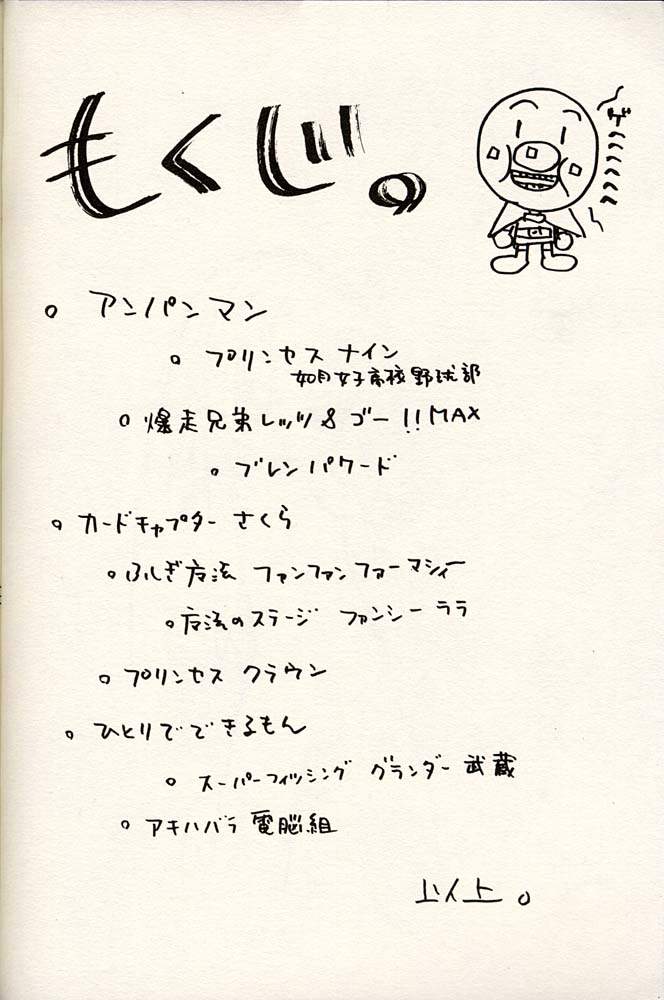 もくじ。
ゲヘヘヘヘヘ
。アンパンマン
。プリンセス ナイン
如月女子高校野球部
。爆走兄弟レッツ&ゴー!!MAX
。ブレンパワード
。カードキャプター さくら
。ふしぎ魔法 ファンファンファーマシィー
。魔法のステージ ファンシーララ
。プリンセス クラウン
。ひとりでできるもん
。スーパーフィッシング グランダー武蔵
。アキハバラ電脳組
以上。